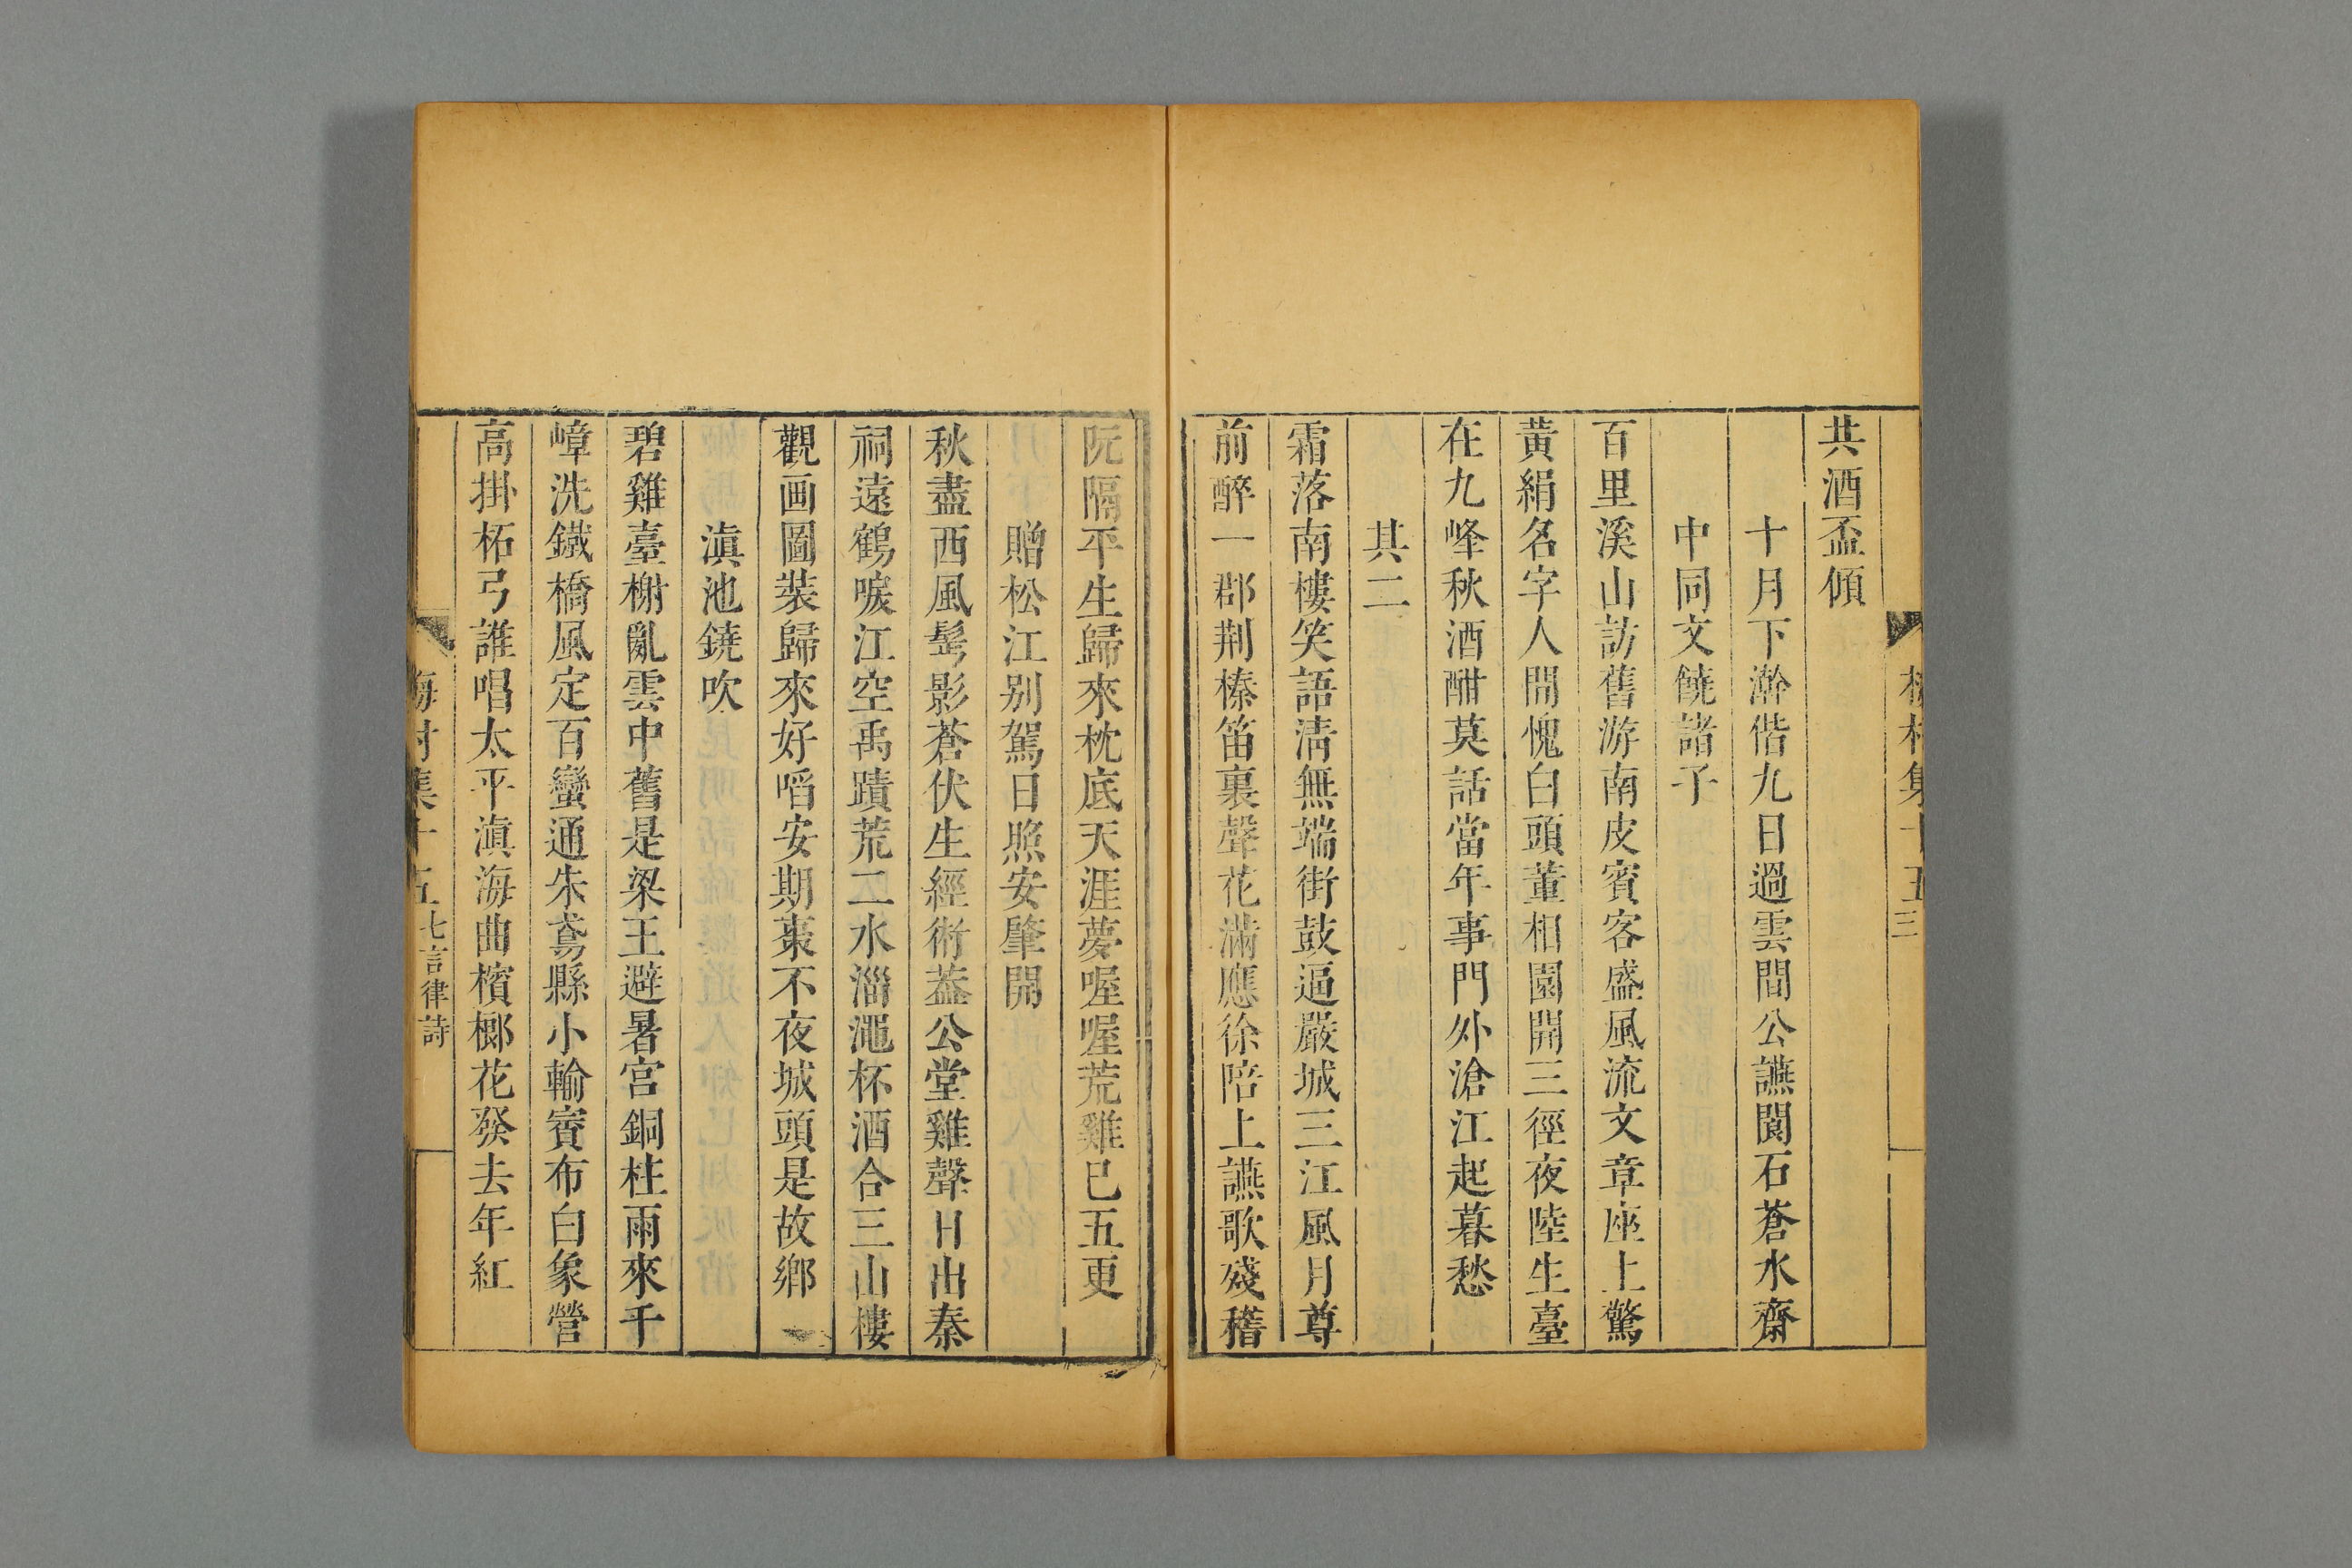 共酒盃傾
十月下澣偕九日過雲間公讌闐石蒼水齋
中同文饒諸子
百里溪山訪舊游南皮賓客盛風流文章座上驚
黃絹名字人間愧白頭董相園開三徑夜陸生臺
在九峰秋酒酣莫話當年事門外滄江起暮愁
其二
霜落南樓笑語淸無端街鼓逼嚴城三江風月尊
前醉一郡荆榛笛裏聲花滿應徐陪上讌歌殘嵇
阮隔平生歸來枕底天涯夢喔喔荒雞已五更
贈松江别駕日照安肇開
秋盡西風髩影蒼伏生經術葢公堂雞聲日出秦
祠遠鶴唳江空禹蹟荒二水淄澠杯酒合三山樓
觀画圖裝歸來好㗖安期棗不夜城頭是故鄉
滇池鐃吹
碧雞臺榭亂雲中舊是梁王避暑宮銅柱雨來千
嶂洗鐵橋風定百蠻通朱鳶縣小輸賨布白象營
高掛柘弓誰唱太平滇海曲檳榔花發去年紅
梅村集十五 七言律詩